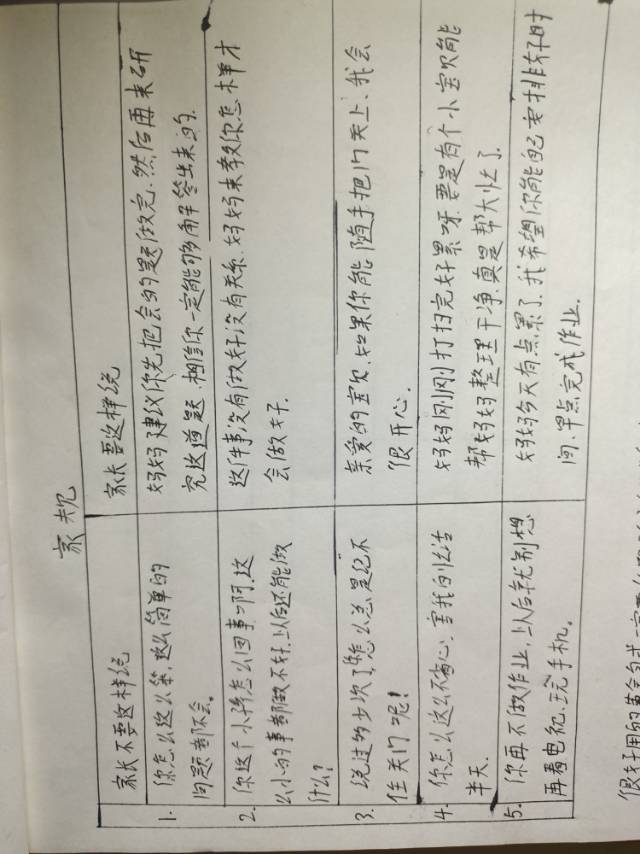 家规
家长不要这样说 家长要这样说
1. 你怎么这么笨,这么简单的
问题都不会。
妈妈建议你先把会的题做完.然后再来研
究这道题.相信你一定能够解答出来的.
2. 你这个小孩怎么回事啊.这
么小的事都做不好.以后还能做
什么?
这件事没有做好没有关系.妈妈来教你怎样才
会做好.
3. 说过多少次了怎么总是记不
住关门呢!
亲爱的宝贝.如果你能随手把门关上.我会
很开心.
4. 你怎么这么不省心.害我白忙活
半天.
妈妈刚刚打扫完好累呀.要是有个小宝贝能
帮妈妈整理干净.真是帮大忙了.
5. 你再不做作业,以后就别想
再看电视.玩手机。
妈妈今天有点累了.我希望你能自己安排好时
间.早点完成作业.